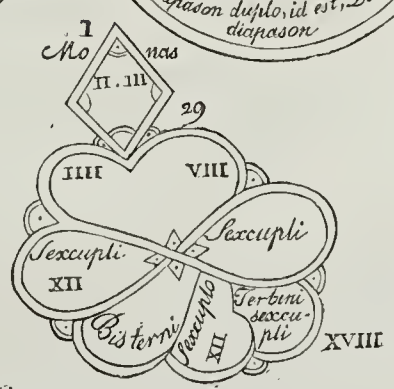 apason duplo, id est,
diapason
1
Mo nas
II. III
29
IIII
VIII
Sexcupli
XII
Sexcupli
Bisterni
Sexcuplo
XII
Terbini
sexcu-
pli
XVIII